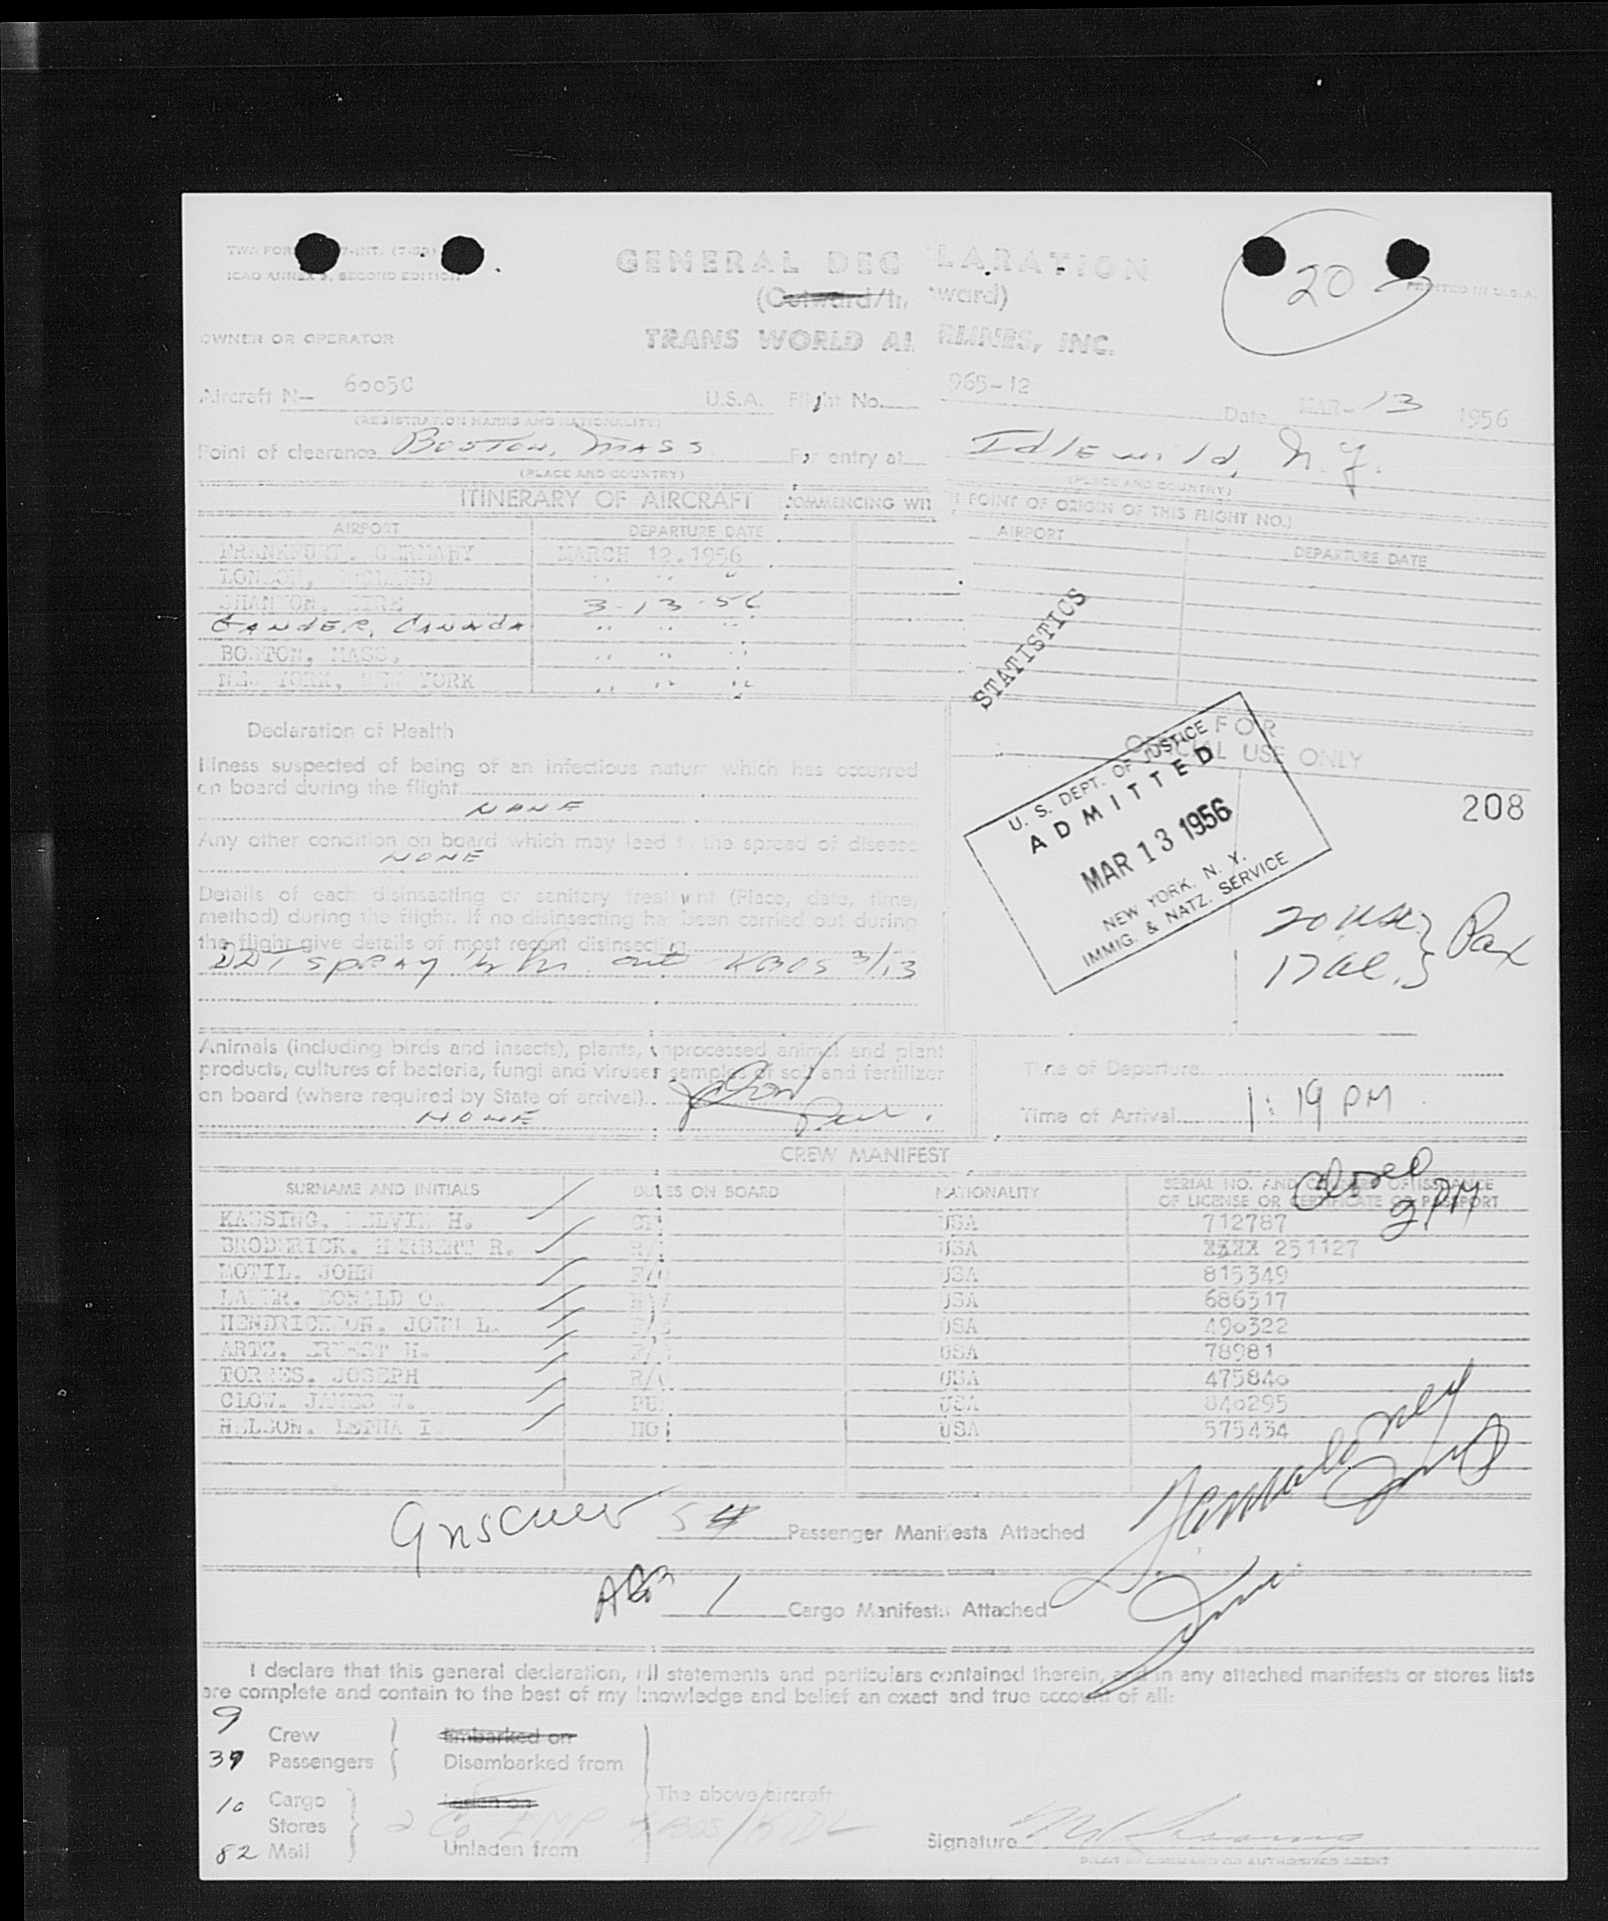 ICAO ANNEX 9, SECOND EDITION
GENERAL DECLARATION
(Outward/Inward)
20
PRINTED IN U.S.A.
OWNER OR OPERATOR
TRANS WORLD AIRLINES, INC.
Aircraft N— 6005C U.S.A. Flight No. 965-12 Date MAR- 13 1956
(REGISTRATION MARKS AND NATIONALITY)
Point of clearance Boston, Mass For entry at Idlewild, N.Y.
(PLACE AND COUNTRY) (PLACE AND COUNTRY)
ITINERARY OF AIRCRAFT COMMENCING WITH POINT OF ORIGIN OF THIS FLIGHT NO.)
AIRPORT DEPARTURE DATE AIRPORT DEPARTURE DATE
FRANKFURT, GERMANY MARCH 12,1956
LONDON, ENGLAND " " "
SHANNON, EIRE 3-13-56
GANDER, CANADA " " "
BOSTON, MASS. " " "
NEW YORK, NEW YORK " " "
STATISTICS
Declaration of Health
FOR OFFICIAL USE ONLY
Illness suspected of being of an infectious nature which has occurred
on board during the flight
NONE
Any other condition on board which may lead to the spread of disease
NONE
Details of each disinsecting or sanitary treatment (Place, date, time,
method) during the flight. If no disinsecting has been carried out during
the flight give details of most recent disinsecting
DDT spray out KBOS 3/13
U. S. DEPT. OF JUSTICE
ADMITTED
MAR 13 1956
NEW YORK, N. Y.
IMMIG. & NATZ. SERVICE
208
20 USC } Pax
17 al. }
Animals (including birds and insects), plants, unprocessed animal and plant
products, cultures of bacteria, fungi and viruses samples of soil and fertilizer
on board (where required by State of arrival)
NONE
Time of Departure
Time of Arrival 1:19 PM
CREW MANIFEST
Closed 2 PM
SURNAME AND INITIALS DUTIES ON BOARD NATIONALITY SERIAL NO. AND COUNTRY OF ISSUANCE
OF LICENSE OR CERTIFICATE OR PASSPORT
KASSING, MELVIN H. USA 712787
BRODERICK, HERBERT R. USA XXXX 251127
MOTIL, JOHN F/O USA 815349
DONALD O. USA 686317
HENDRICKSON, JOHN L. USA 490322
ARTZ, ERNEST H. USA 78981
TORRES, JOSEPH USA 475846
CLOW, JAMES W. PU USA 846295
NELSON, I HO USA 575434
54 Passenger Manifests Attached
1 Cargo Manifests Attached
I declare that this general declaration, all statements and particulars contained therein, and in any attached manifests or stores lists
are complete and contain to the best of my knowledge and belief an exact and true account of all:
9 Crew Embarked on
37 Passengers Disembarked from
The above aircraft
10 Cargo Laden on
Stores
82 Mail Unladen from
Signature
PILOT IN COMMAND OR AUTHORIZED AGENT